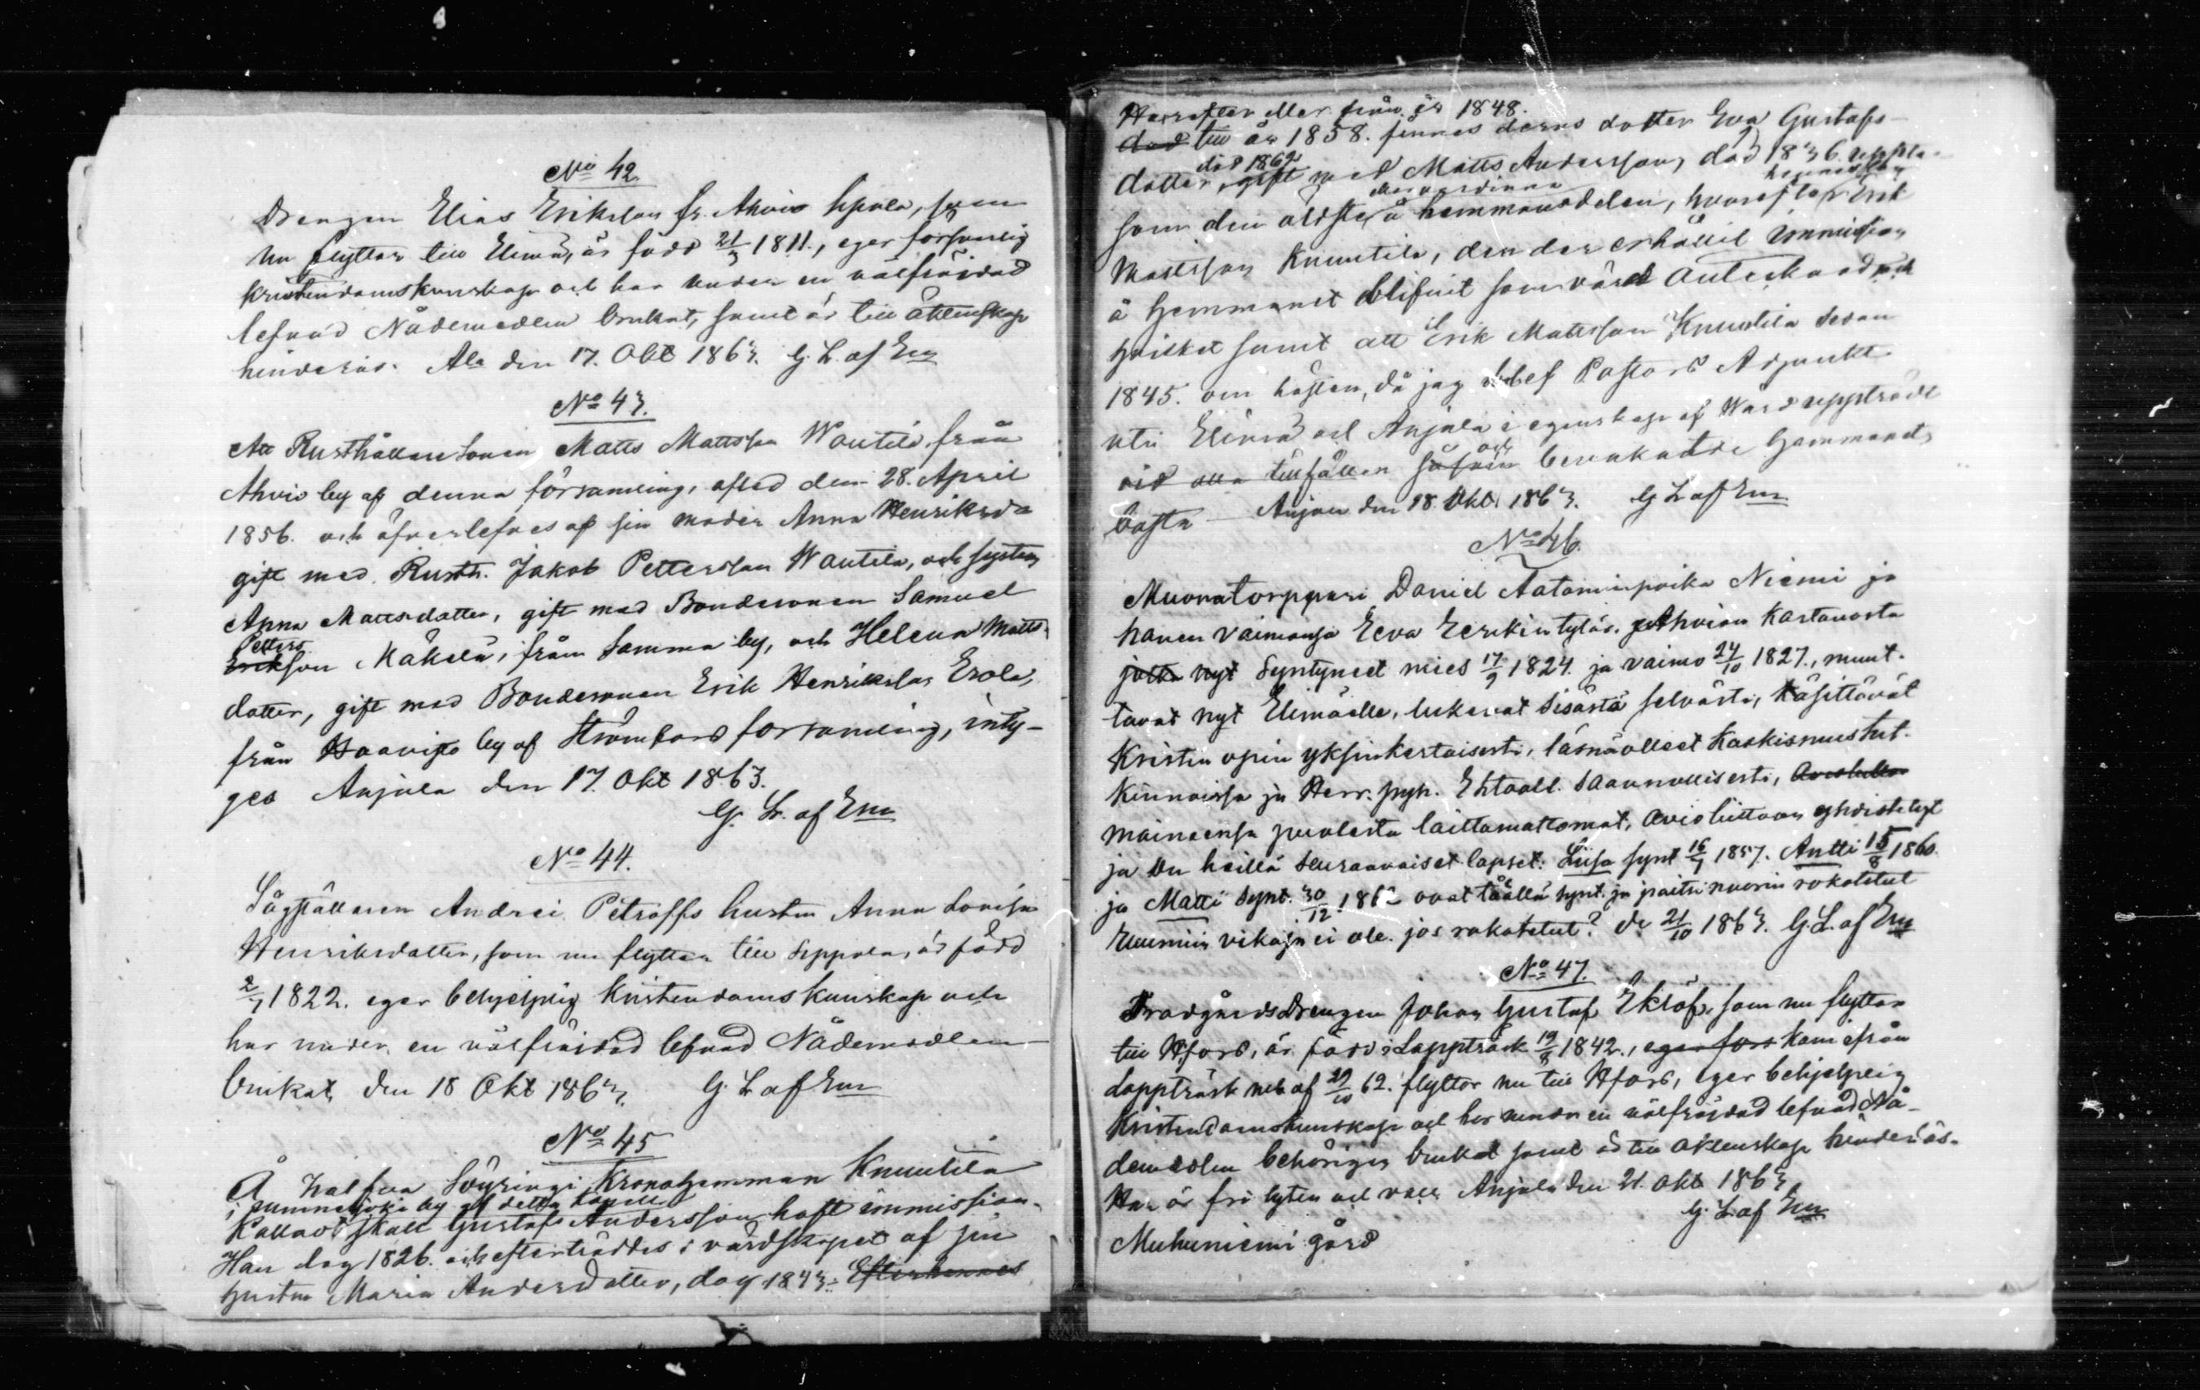 No 42.
Drengen Elias Eriksson fr. Ahvio Sipola, som
nu flyttar till Elimä, är född 21/3 1811, eger försvarlig
kristendomskunskap och har under en välfräjdad
lefnad Nådemedlen brukat, samt är till äktenskap
hinderlös. Ala den 17. Okt 1863. G. L. af Enn
No 43.
Att Rusthållaresonen Matts Mattsson Wantila från
Ahvio by af denna församling, afled den 28. April
1856. och öfverlefves af sin moder Anna Henriksd=
gift med Rusth. Jakob Pettersson Wantila, och systern
Anna Mattsdotter, gift med Bondesonen Samuel
Petters
Erikson Mäkelä, från Samma by, och Helena Matts-
dotter, gift med Bondesonen Erik Henriksson Erola,
från Haavisto by af Strömfors församling, inty-
ges Anjala den 17. Okt 1863.
G. L. af Enn
No 44.
Sågställaren Andrei Petroffs hustru Anna Lovisa
Henriksdotter, som nu flyttar till Sippola, är född
2/7 1822. eger behjelplig Kristendoms kunskap och
har under en välfräjdad lefnad Nådemedlen
brukat, den 18 Okt 1863. G. L af Enn
No 45
Å halfva Söyringi Kronohemman Knuutila
i Ummeljoki by af detta kapell
kalladt skall Gustaf Andersson haft immission.
Han dog 1826. och efterträddes i värdskapet af sin
hustru Maria Andersdotter, dog 1843. Efterhennes
Harefter eller från år 1848.
död till år 1858. finnes deras dotter Eva Gustafs-
död 1862
dotter, gift med Matts Andersson, död 1836. uppta-
som den äldsta värdinna å hemmansdelen, hvarefter hennes son Erik
Mattsson Knuutila, den der erhållit immission
å hemmanet blifvit som värd antecknad och
hvilket samt att Erik Mattsson Knuutila sedan
1845. om hösten, då jag blef Pastors Adjunkt
uti Elimä och Anjala i egenskap af Värd uppträdt
och
vid alla tillfällen såsom bevakande hemmanets
bästa — Anjala den 18 Okt 1863. G L af Enn
No 46.
Muonatorppari Daniel Aataminpoika Niemi ja
hänen vaimonsa Eeva Eerikintytär. Ahvion Kartanosta
jotka nyt Syntyneet mies 17/9 1824. ja vaimo 24/10 1827., muut-
tavat nyt Elimäelle, lukevat Sisästä selvästi, käsittävät
Kristin opin yksinkertaisesti, läsnäolleet Kaskismustut-
kinnoissa ja Herr. pyh. Ehtooll. Säännöllisesti, Avioliitto
maineensa puolesta laittamattomat, avioliittoon yhdistetyt
ja On heillä seuraavaiset lapset: Liisa synt 16/7 1857. Antti 15/8 1860
ja Matti synt. 30/12 1862 ovat täällä synt. ja paitsi nuorin rokotetut
Ruumiin vikoja ei ole. jos rokotetut? de 21/10 1863. G. L. af Enn
No 47.
TrädgårdsDrengen Johan Gustaf Ekröf, som nu flyttar
till Hfors, är född i Lappträsk 19/8 1842., eger förs kom ifrån
Lappträsk med af 29/10 62. flyttar nu till Hfors, eger behjelplig
Kristendomskunskap och har under en välfräjdad lefnad Nå-
demedlen behörigen brukat samt är till äktenskap hinderlös.
Han är fri lyten och vacc. Anjala den 21. Okt 1863
G. L. af Enn
Muhuniemi gård